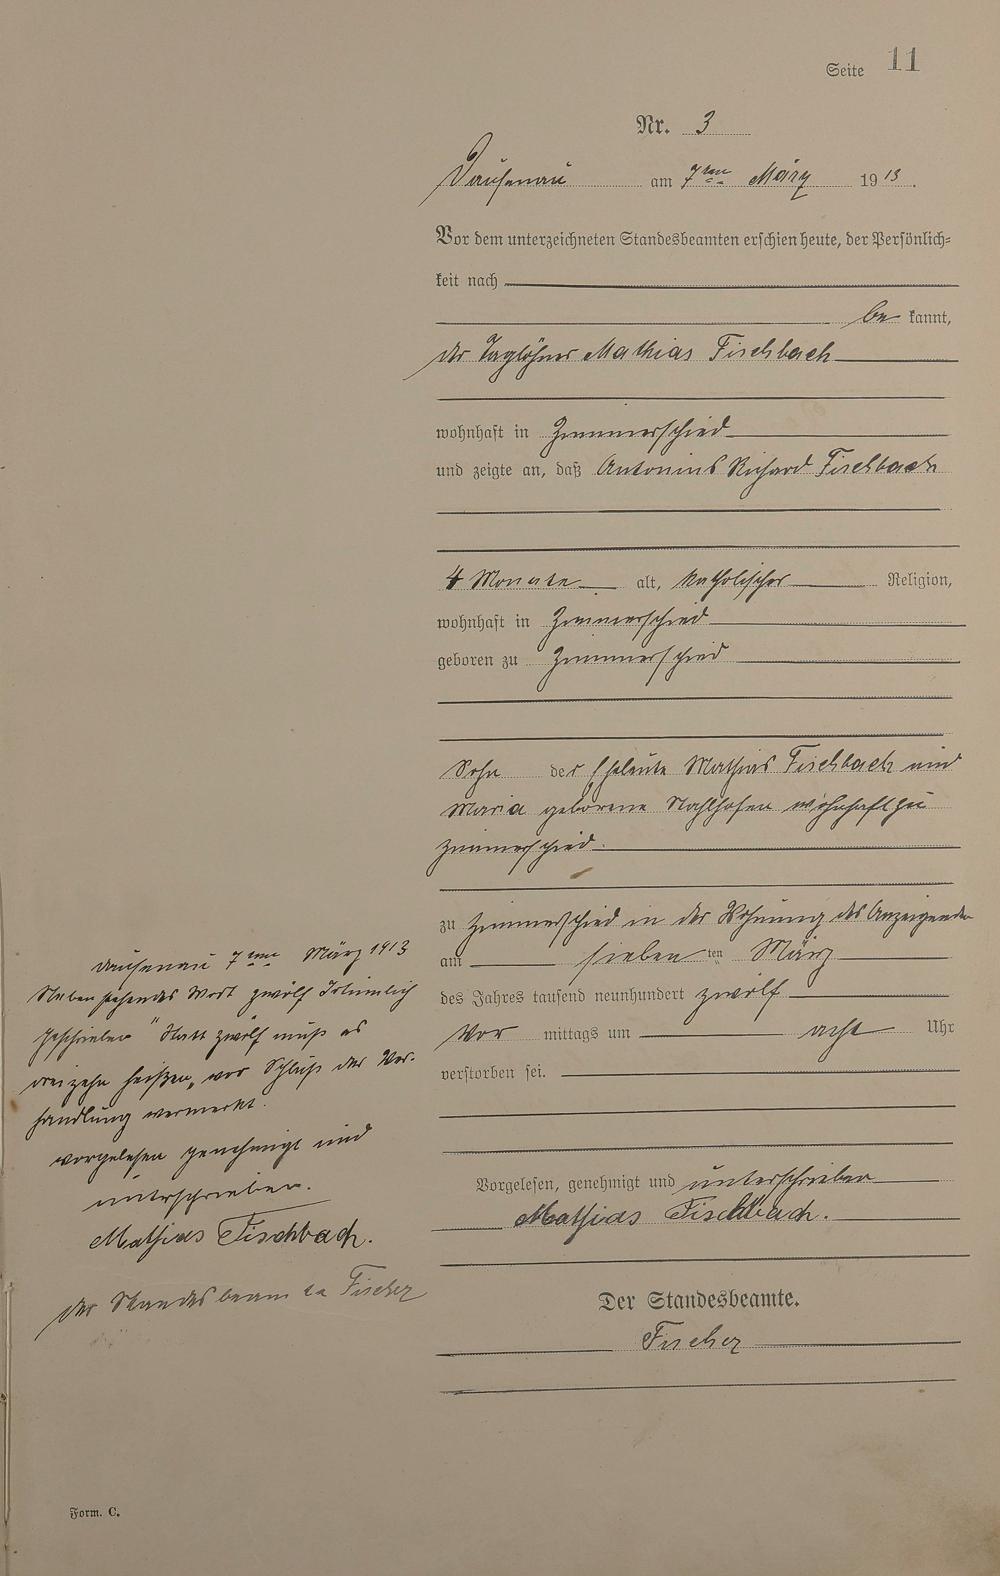 Seite 11
Nr. 3
Dausenau am 7ten März 1913.
Vor dem unterzeichneten Standesbeamten erschien heute, der Persönlich=
keit nach
be kannt,
der Taglöhner Mathias Fischbach
wohnhaft in Zimmerschied
und zeigte an, daß Antonius Richard Fischbach
4 Monate alt, katholischer Religion,
wohnhaft in Zimmerschied
geboren zu Zimmerschied
Sohn der Eheleute Mathias Fischbach und
Maria geborene Stahlhofen wohnhaft zu
Zimmerschied.
zu Zimmerschied in der Wohnung des Anzeigenden
am sieben ten März
des Jahres tausend neunhundert zwölf
Vor mittags um acht Uhr
verstorben sei.
Vorgelesen, genehmigt und unterschrieben
Mathias Fischbach.
Der Standesbeamte.
Fischer
Dausenau 7ten März 1913
Nebenstehendes Wort zwölf Irtümlich
geschrieben "Statt zwölf muß es
dreizehn heißen, vor Schluß der Ver-
handlung vermerkt.
vorgelesen genehmigt und
unterschrieben.
Mathias Fischbach.
der Standesbeamte Fischer
Form. C.